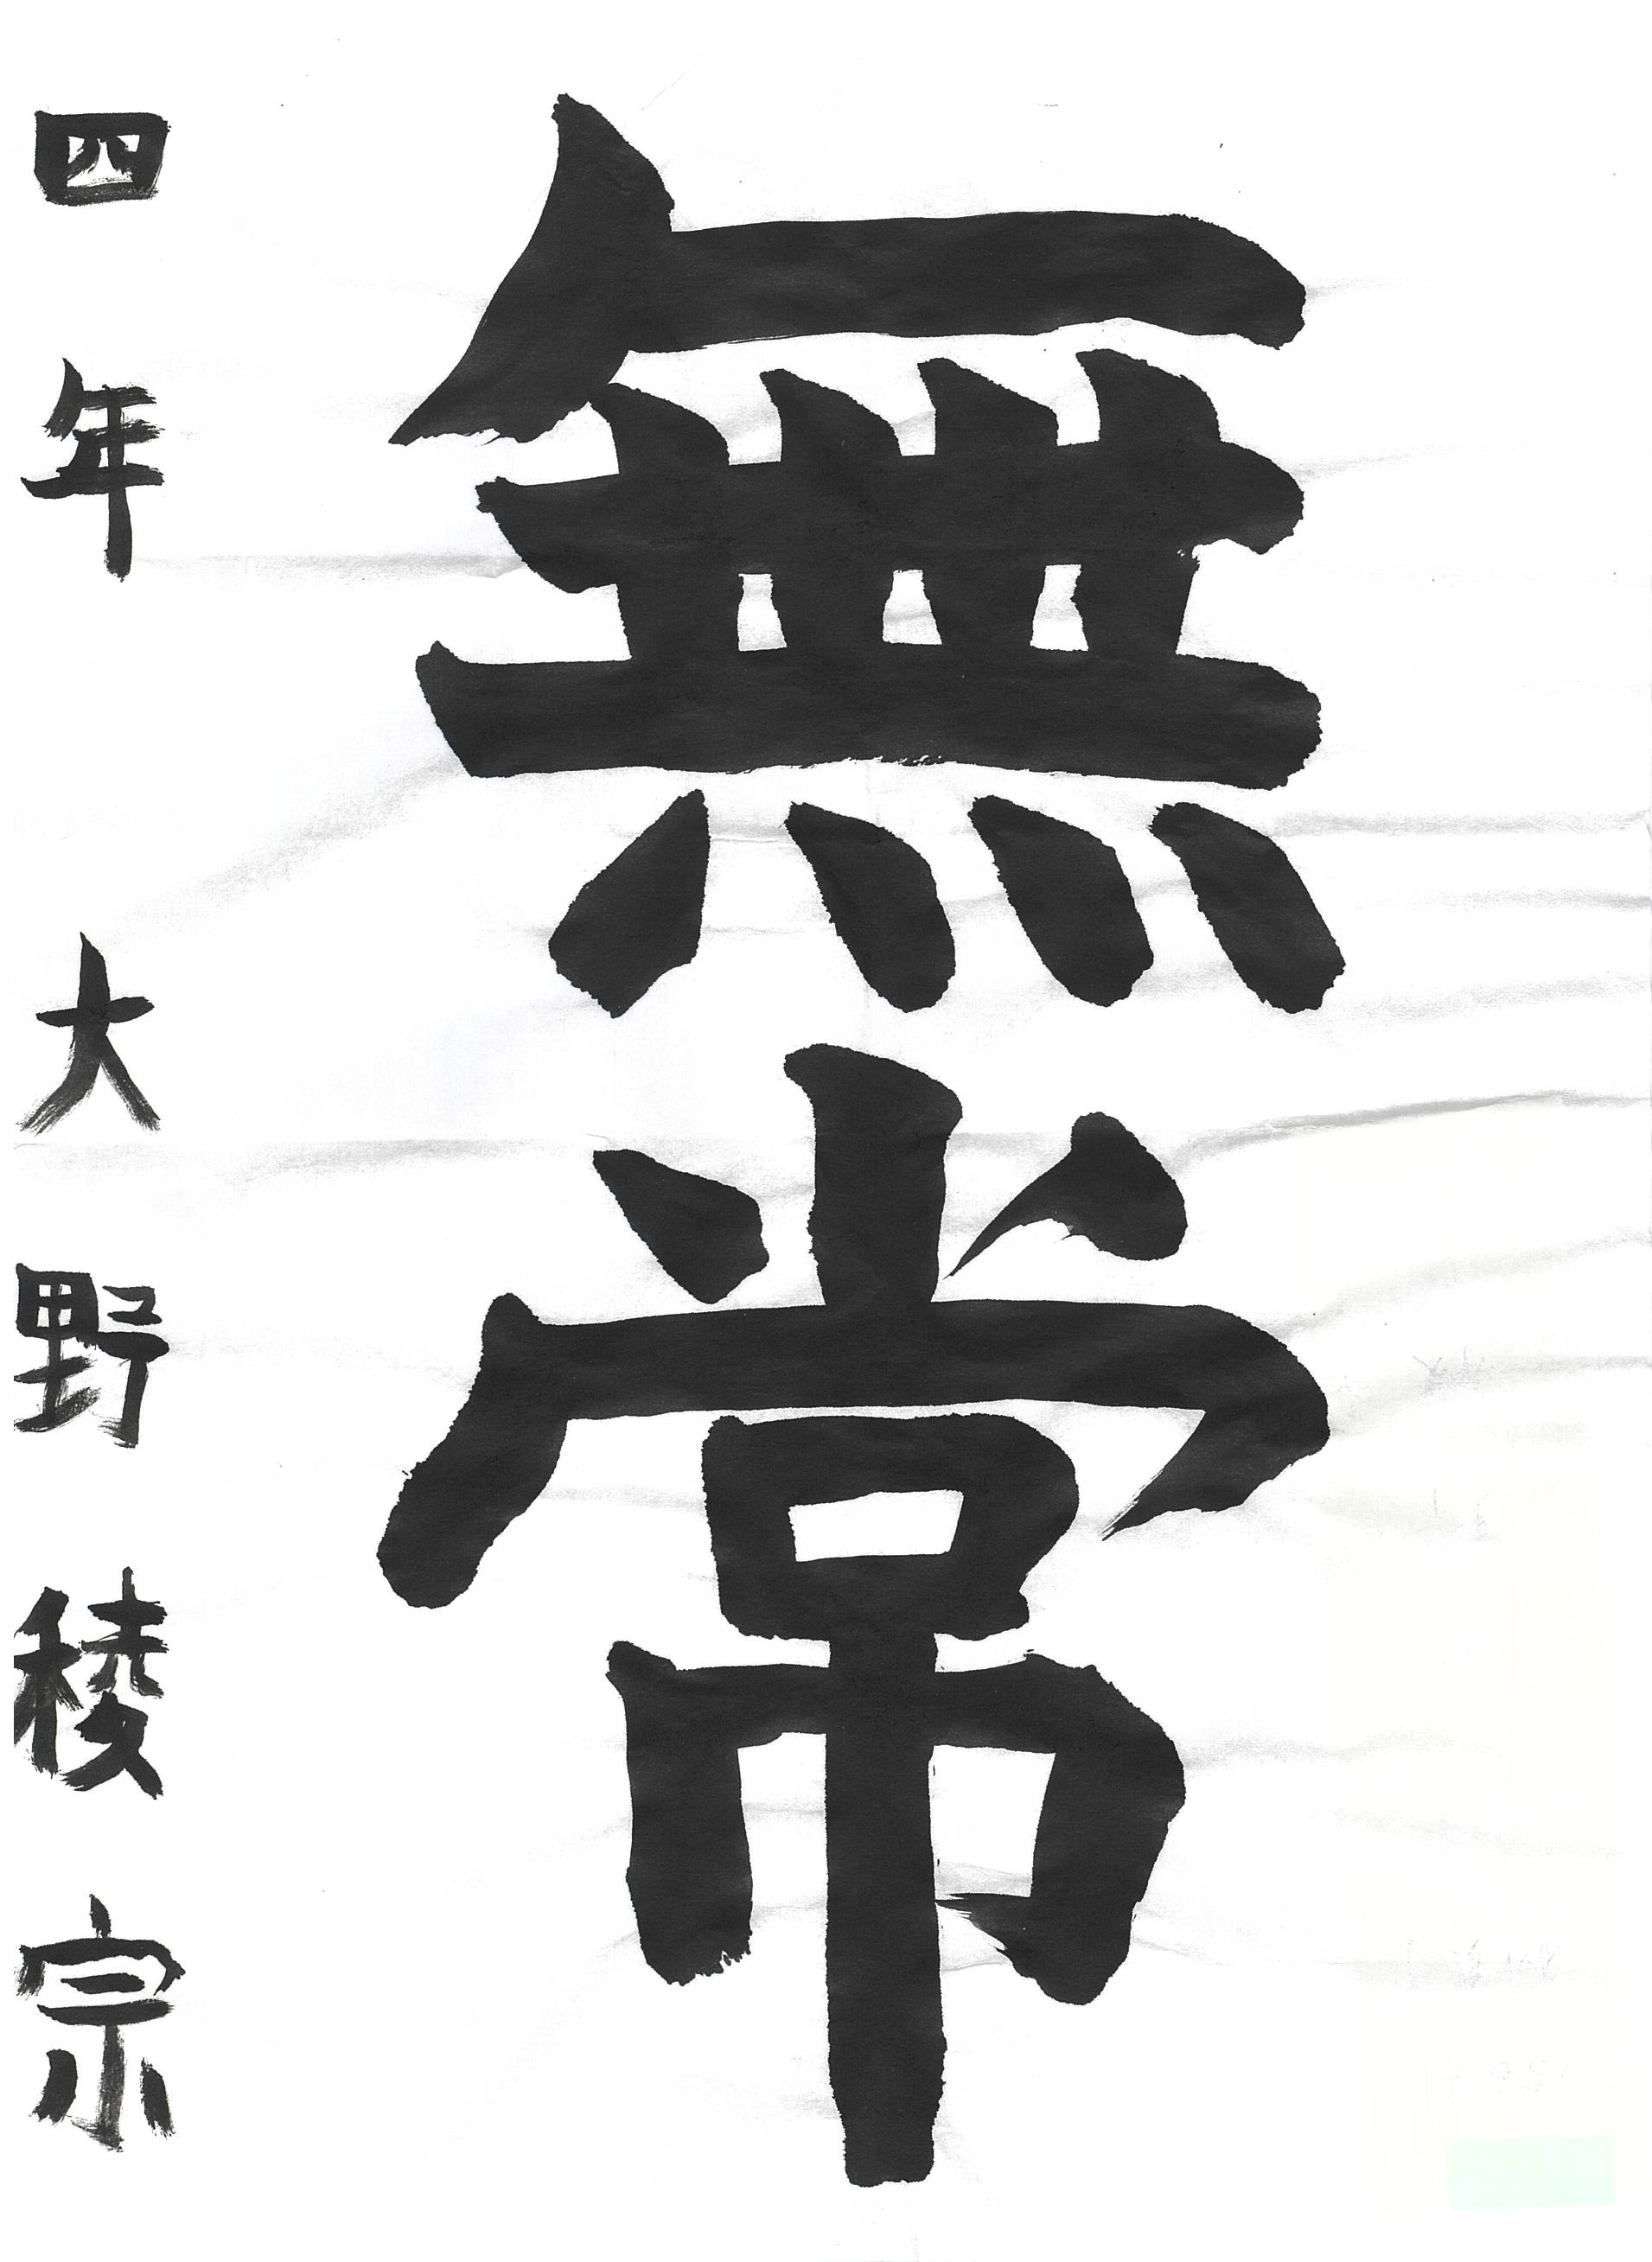 無常
四年 大野稜宗